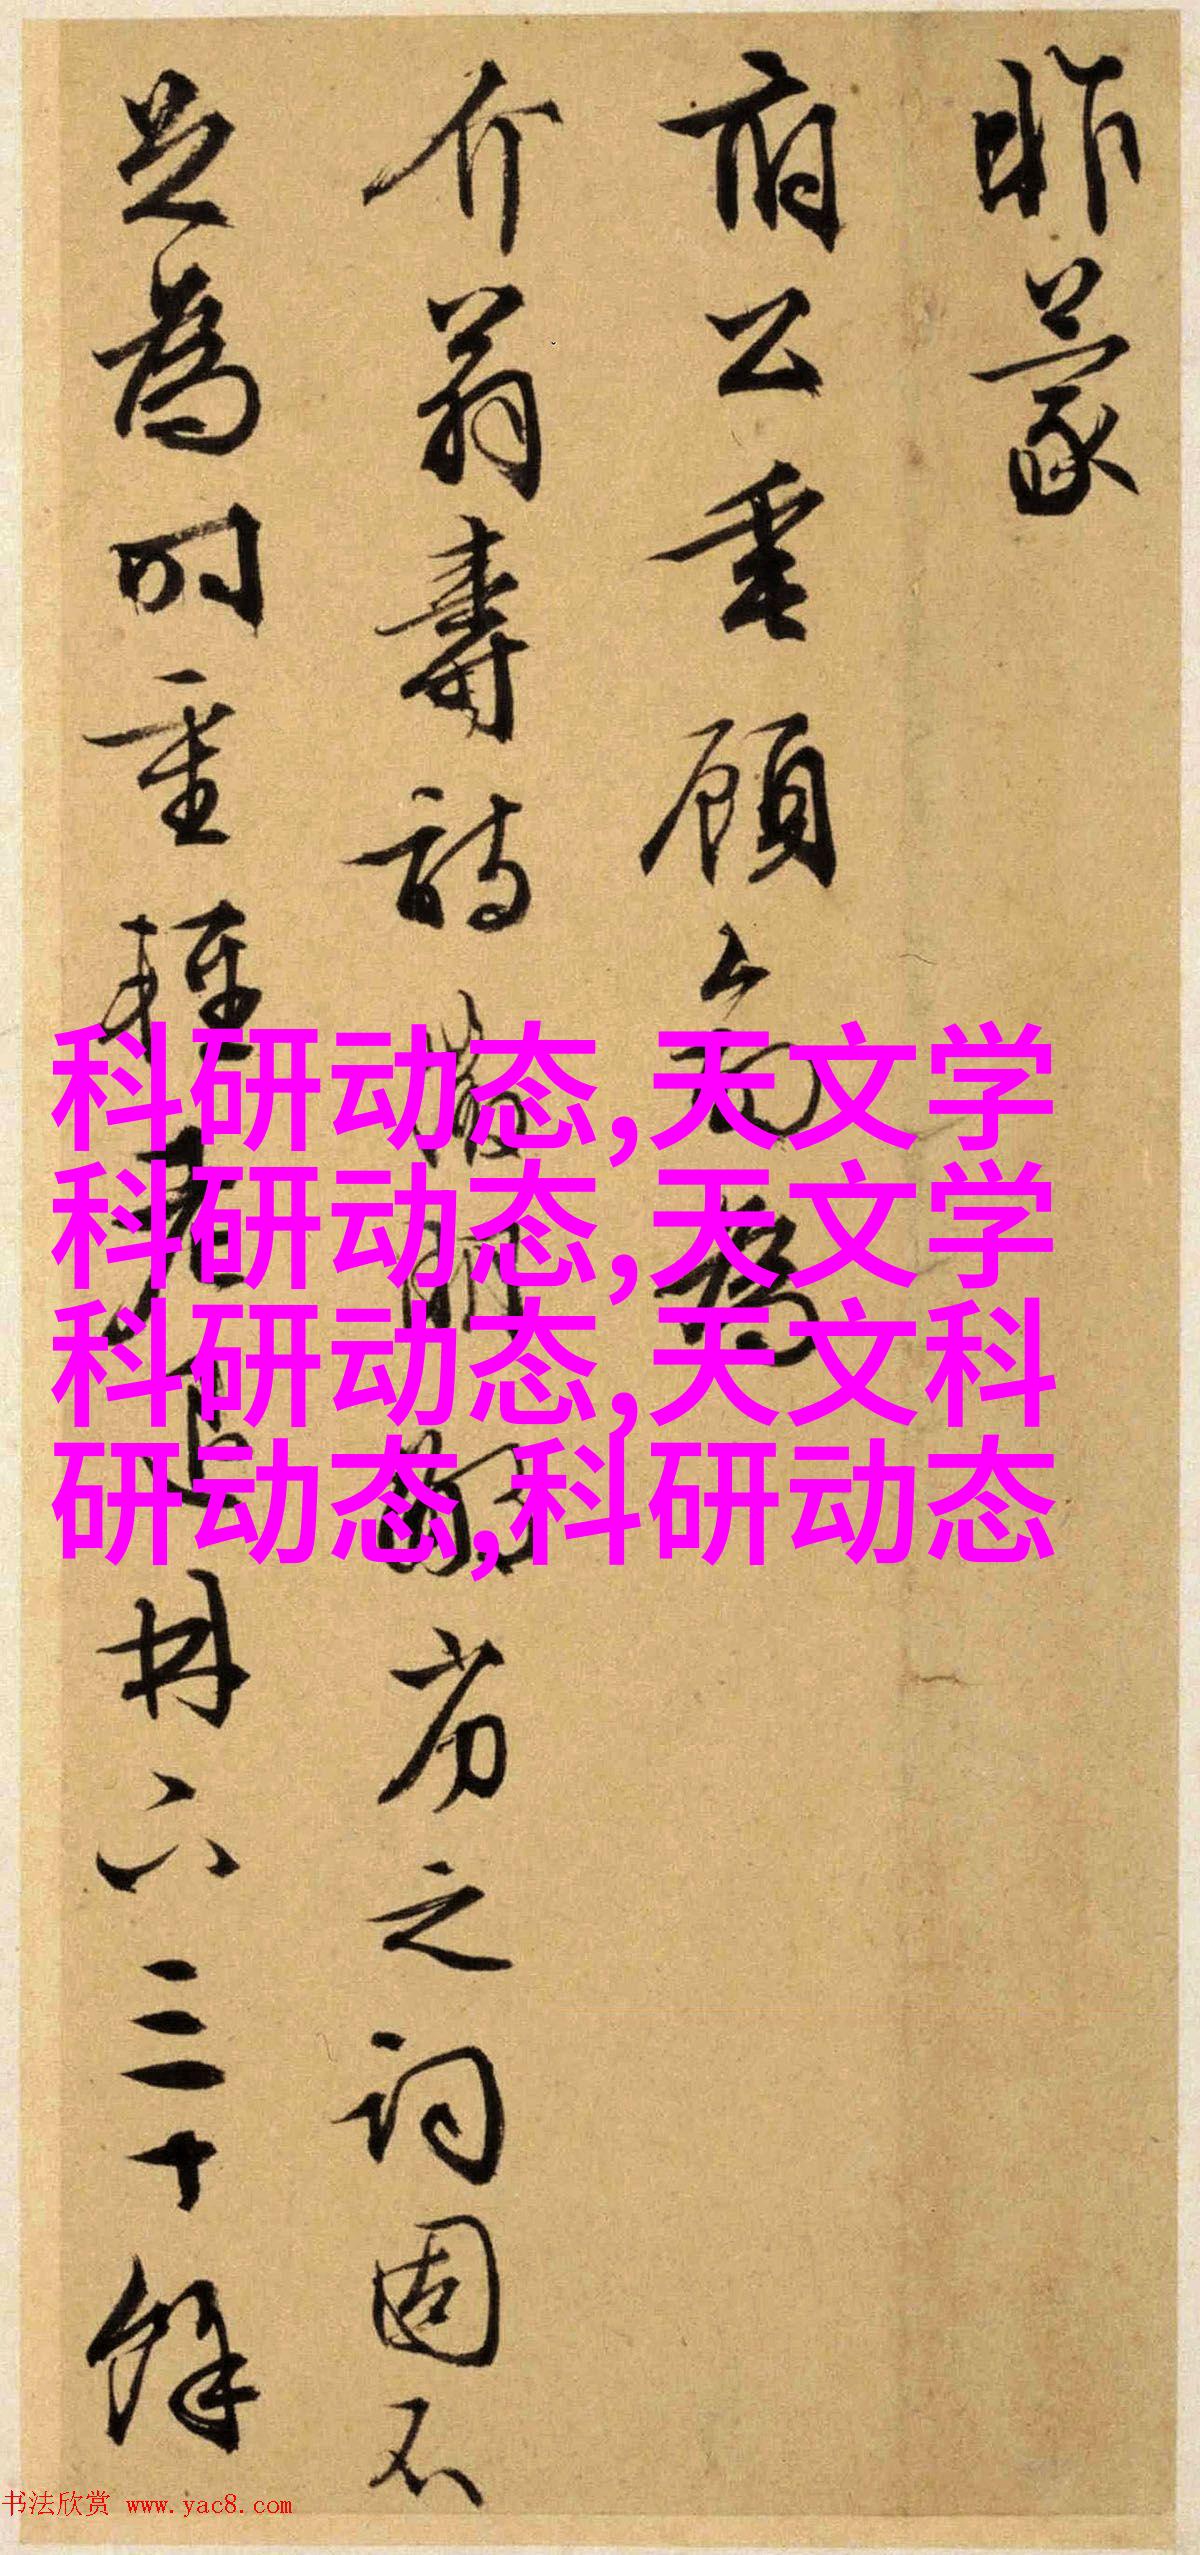 昨蒙
府公垂顧命為
介翁壽詩之詞固不
足為時重輕六三十餘
科研动态,天文学
科研动态,天文学
科研动态,天文科
研动态,科研动态
书法欣赏 www.yac8.com